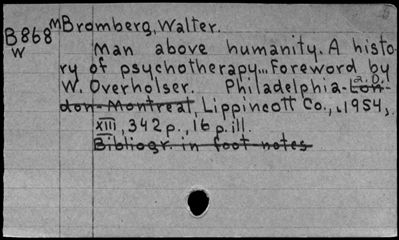 B868 M Bromberg, Walter.
W Man above humanity. A histo-
ry of psychotherapy... Foreword by
W. Overholser. Philadelphia-Lon-
a.o.
don-Montreal, Lippincott Co., 1954,
XIII, 342 p., 16 p. ill.
Bibliogr. in foot-notes